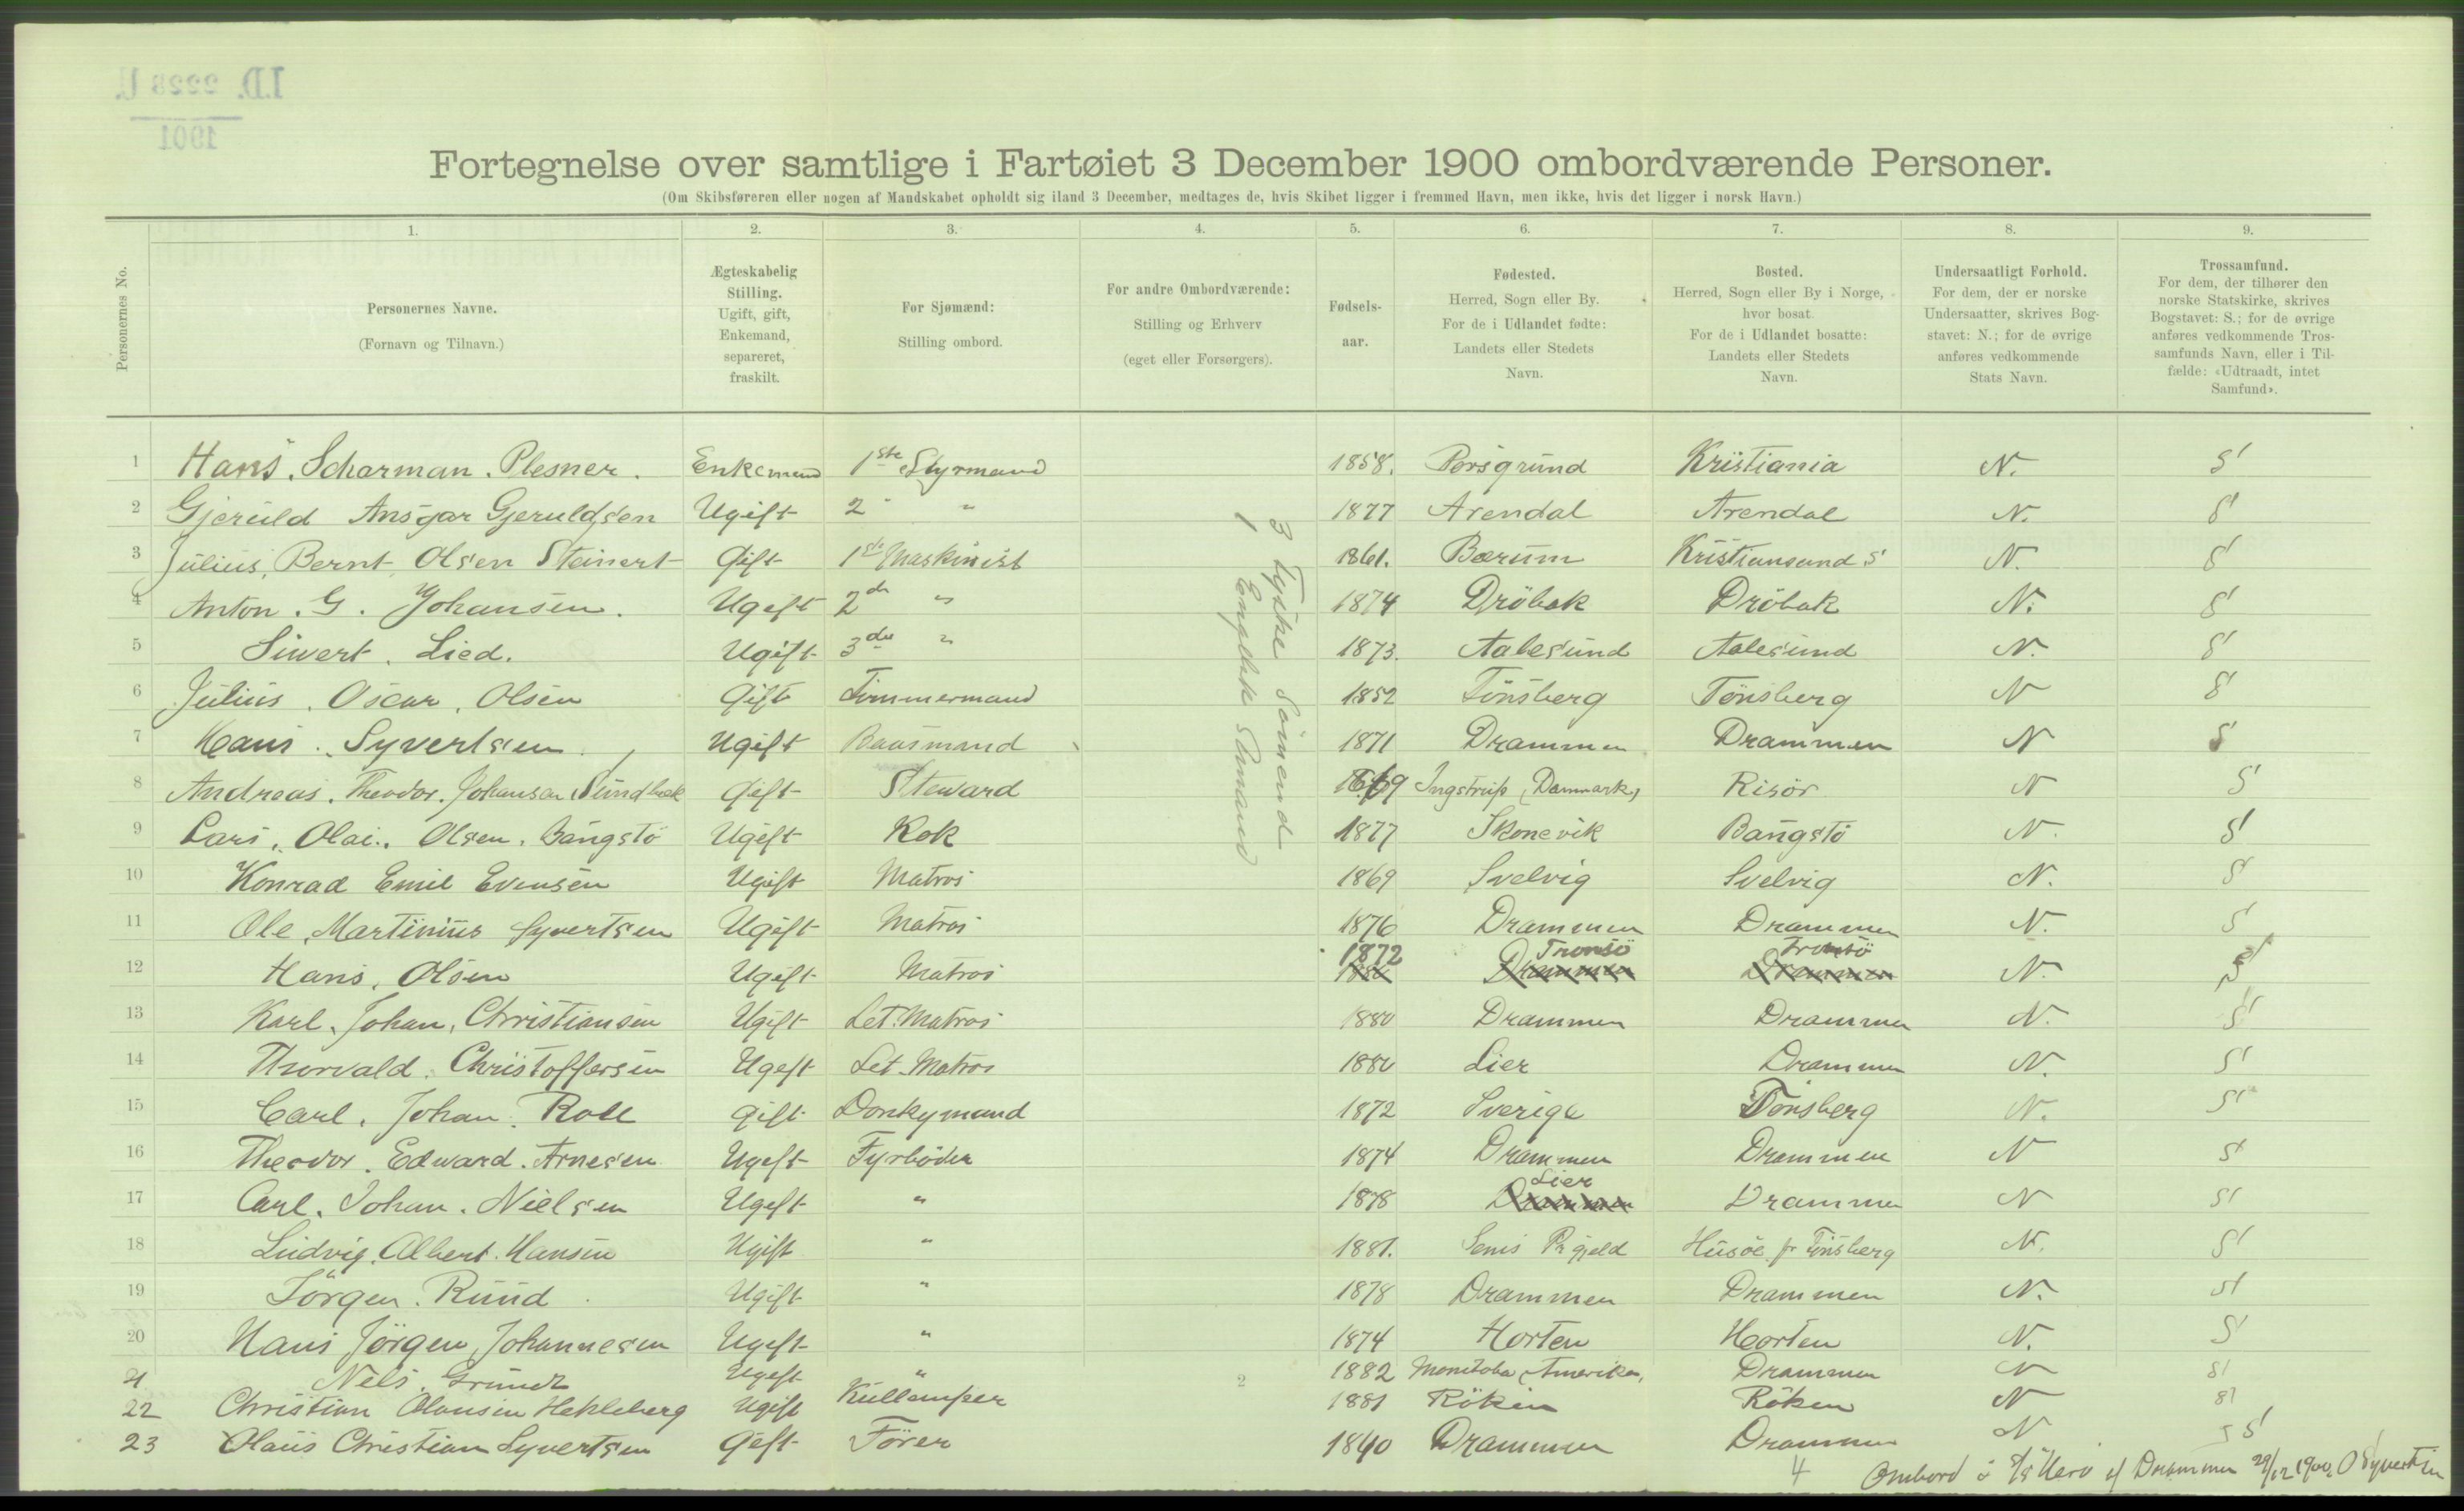 I.D. 2228 U.
1901
Fortegnelse over samtlige i Fartøiet 3 December 1900 ombordværende Personer.
(Om Skibsføreren eller nogen af Mandskabet opholdt sig iland 3 December, medtages de, hvis Skibet ligger i fremmed Havn, men ikke, hvis det ligger i norsk Havn.)
Personernes No.
1. 2. 3. 4. 5. 6. 7. 8. 9.
Personernes Navne.
(Fornavn og Tilnavn.)
Ægteskabelig
Stilling.
Ugift, gift,
Enkemand,
separeret,
fraskilt.
For Sjømænd:
Stilling ombord.
For andre Ombordværende:
Stilling og Erhverv
(eget eller Forsørgers).
Fødsels-
aar.
Fødested.
Herred, Sogn eller By.
For de i Udlandet fødte:
Landets eller Stedets
Navn.
Bosted.
Herred, Sogn eller By i Norge,
hvor bosat.
For de i Udlandet bosatte:
Landets eller Stedets
Navn.
Undersaatligt Forhold.
For dem, der er norske
Undersaatter, skrives Bog-
stavet: N.; for de øvrige
anføres vedkommende
Stats Navn.
Trossamfund.
For dem, der tilhører den
norske Statskirke, skrives
Bogstavet: S.; for de øvrige
anføres vedkommende Tros-
samfunds Navn, eller i Til-
fælde: «Udtraadt, intet
Samfund».
1 Hans. Scharman. Plesner. Enkemand 1ste Styrmand 1858. Porsgrund Kristiania N. S
2 Gjeruld Ansgar Gjeruldsen Ugift 2 " " 1877 Arendal Arendal N. S
3 Julius, Bernt Olsen Steinert Gift 1ste Maskinist 1861. Bærum Kristiansund S N. S
4 Anton. G. Johansen. Ugift 2den " 1874 Dröbak Dröbak N. S
5 Sivert. Lied. Ugift 3die " 1873. Aalesund Aalesund N. S
6 Julius. Oscar. Olsen Gift Tömmermand 1852 Tönsberg Tönsberg N S
7 Hans. Syvertsen. Ugift Baasmand 1871 Drammen Drammen N S
8 Andreas. Theodor. Johansen Sundbæk Gift Steward 1869 Ingstrup (Danmark) Risör N S
9 Lars. Olai. Olsen. Bangstö Ugift Kok 1877 Skonevik Bangstö N. S
10 Konrad Emil Evensen Ugift Matros 1869 Svelvig Svelvig N. S
11 Ole Martinius Syvertsen Ugift Matros 1876 Drammen Drammen N. S
1872 Tromsö Tromsö
12 Hans. Olsen Ugift Matros 1880 Drammen Drammen N. S
13 Karl. Johan. Christiansen Ugift Let. Matros 1880 Drammen Drammen N. S
14 Thorvald. Christoffersen Ugift Let. Matros 1880 Lier Drammen N. S
15 Carl. Johan. Roll gift Donkymand 1872 Sverige Tönsberg N. S
16 Theodor. Edward. Arnesen Ugift Fyrböder 1874 Drammen Drammen N S
Lier
17 Carl. Johan. Nielsen Ugift " 1878 Drammen Drammen N S
18 Ludvig. Albert. Hansen Ugift " 1881. Sems Pr gjeld Husöe pr Tönsberg N. S
19 Jörgen. Rund. Ugift " 1878 Drammen Drammen N. S
20 Hans Jörgen Johannesen Ugift " 1874 Horten Horten N. S
21 Nels. Grundt Ugift " 1882 Manitoba (Amerika) Drammen N S
22 Christian Olausen Hekleberg Ugift Kullemper 1881 Röken Röken N S
23 Olaus Christian Syvertsen Gift Förer 1840 Drammen Drammen N S
3 tyske Sömænd
1 Engelsk Sömand
2
4
Ombord i S/S Hero af Drammen 29/12 1900, O Syvertsen